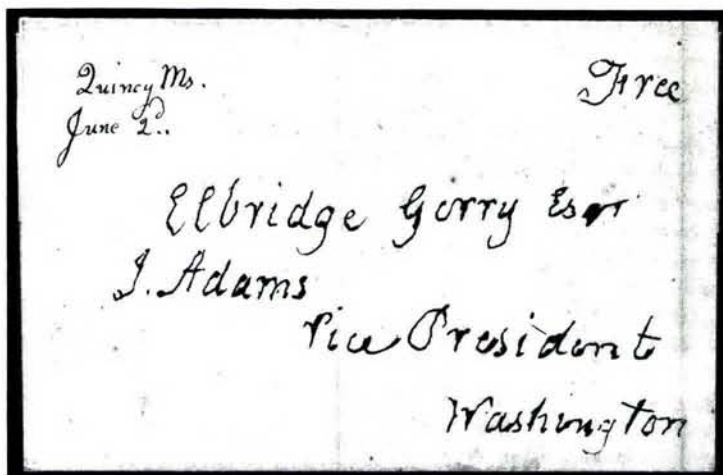 Quincy Ms.
June 2d.
Free
Elbridge Gerry Esqr
J. Adams
Vice President
Washington